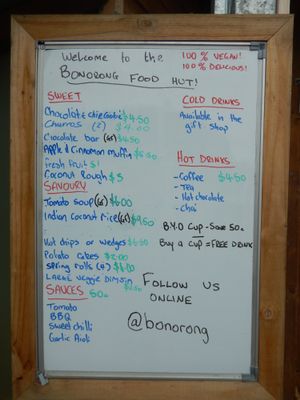 Welcome to the
BONORONG FOOD HUT!
100% VEGAN!
100% DELICIOUS!
SWEET
Chocolate chip Cookie $4.50
Churros (2) $4.00
Chocolate bar (GF) $4.50
Apple & Cinnamon muffin $5.50
fresh fruit $1
Coconut Rough $5
SAVOURY
Tomato soup (GF) $6.00
Indian Coconut rice (GF) $9.50
Hot chips or wedges $6.50
Potato cakes $2.00
Spring rolls
LARGE Veggie DIMSIM
SAUCES 50c
Tomato
BBQ
Sweet chilli
Garlic Aioli
COLD DRINKS
Available in the
gift shop
HOT DRINKS
- Coffee $4.50
- Tea
- Hot chocolate
- Chai
B.Y.O CUP - Save 50c
Buy a CUP = FREE DRINK
FOLLOW US
ONLINE
@bonorong